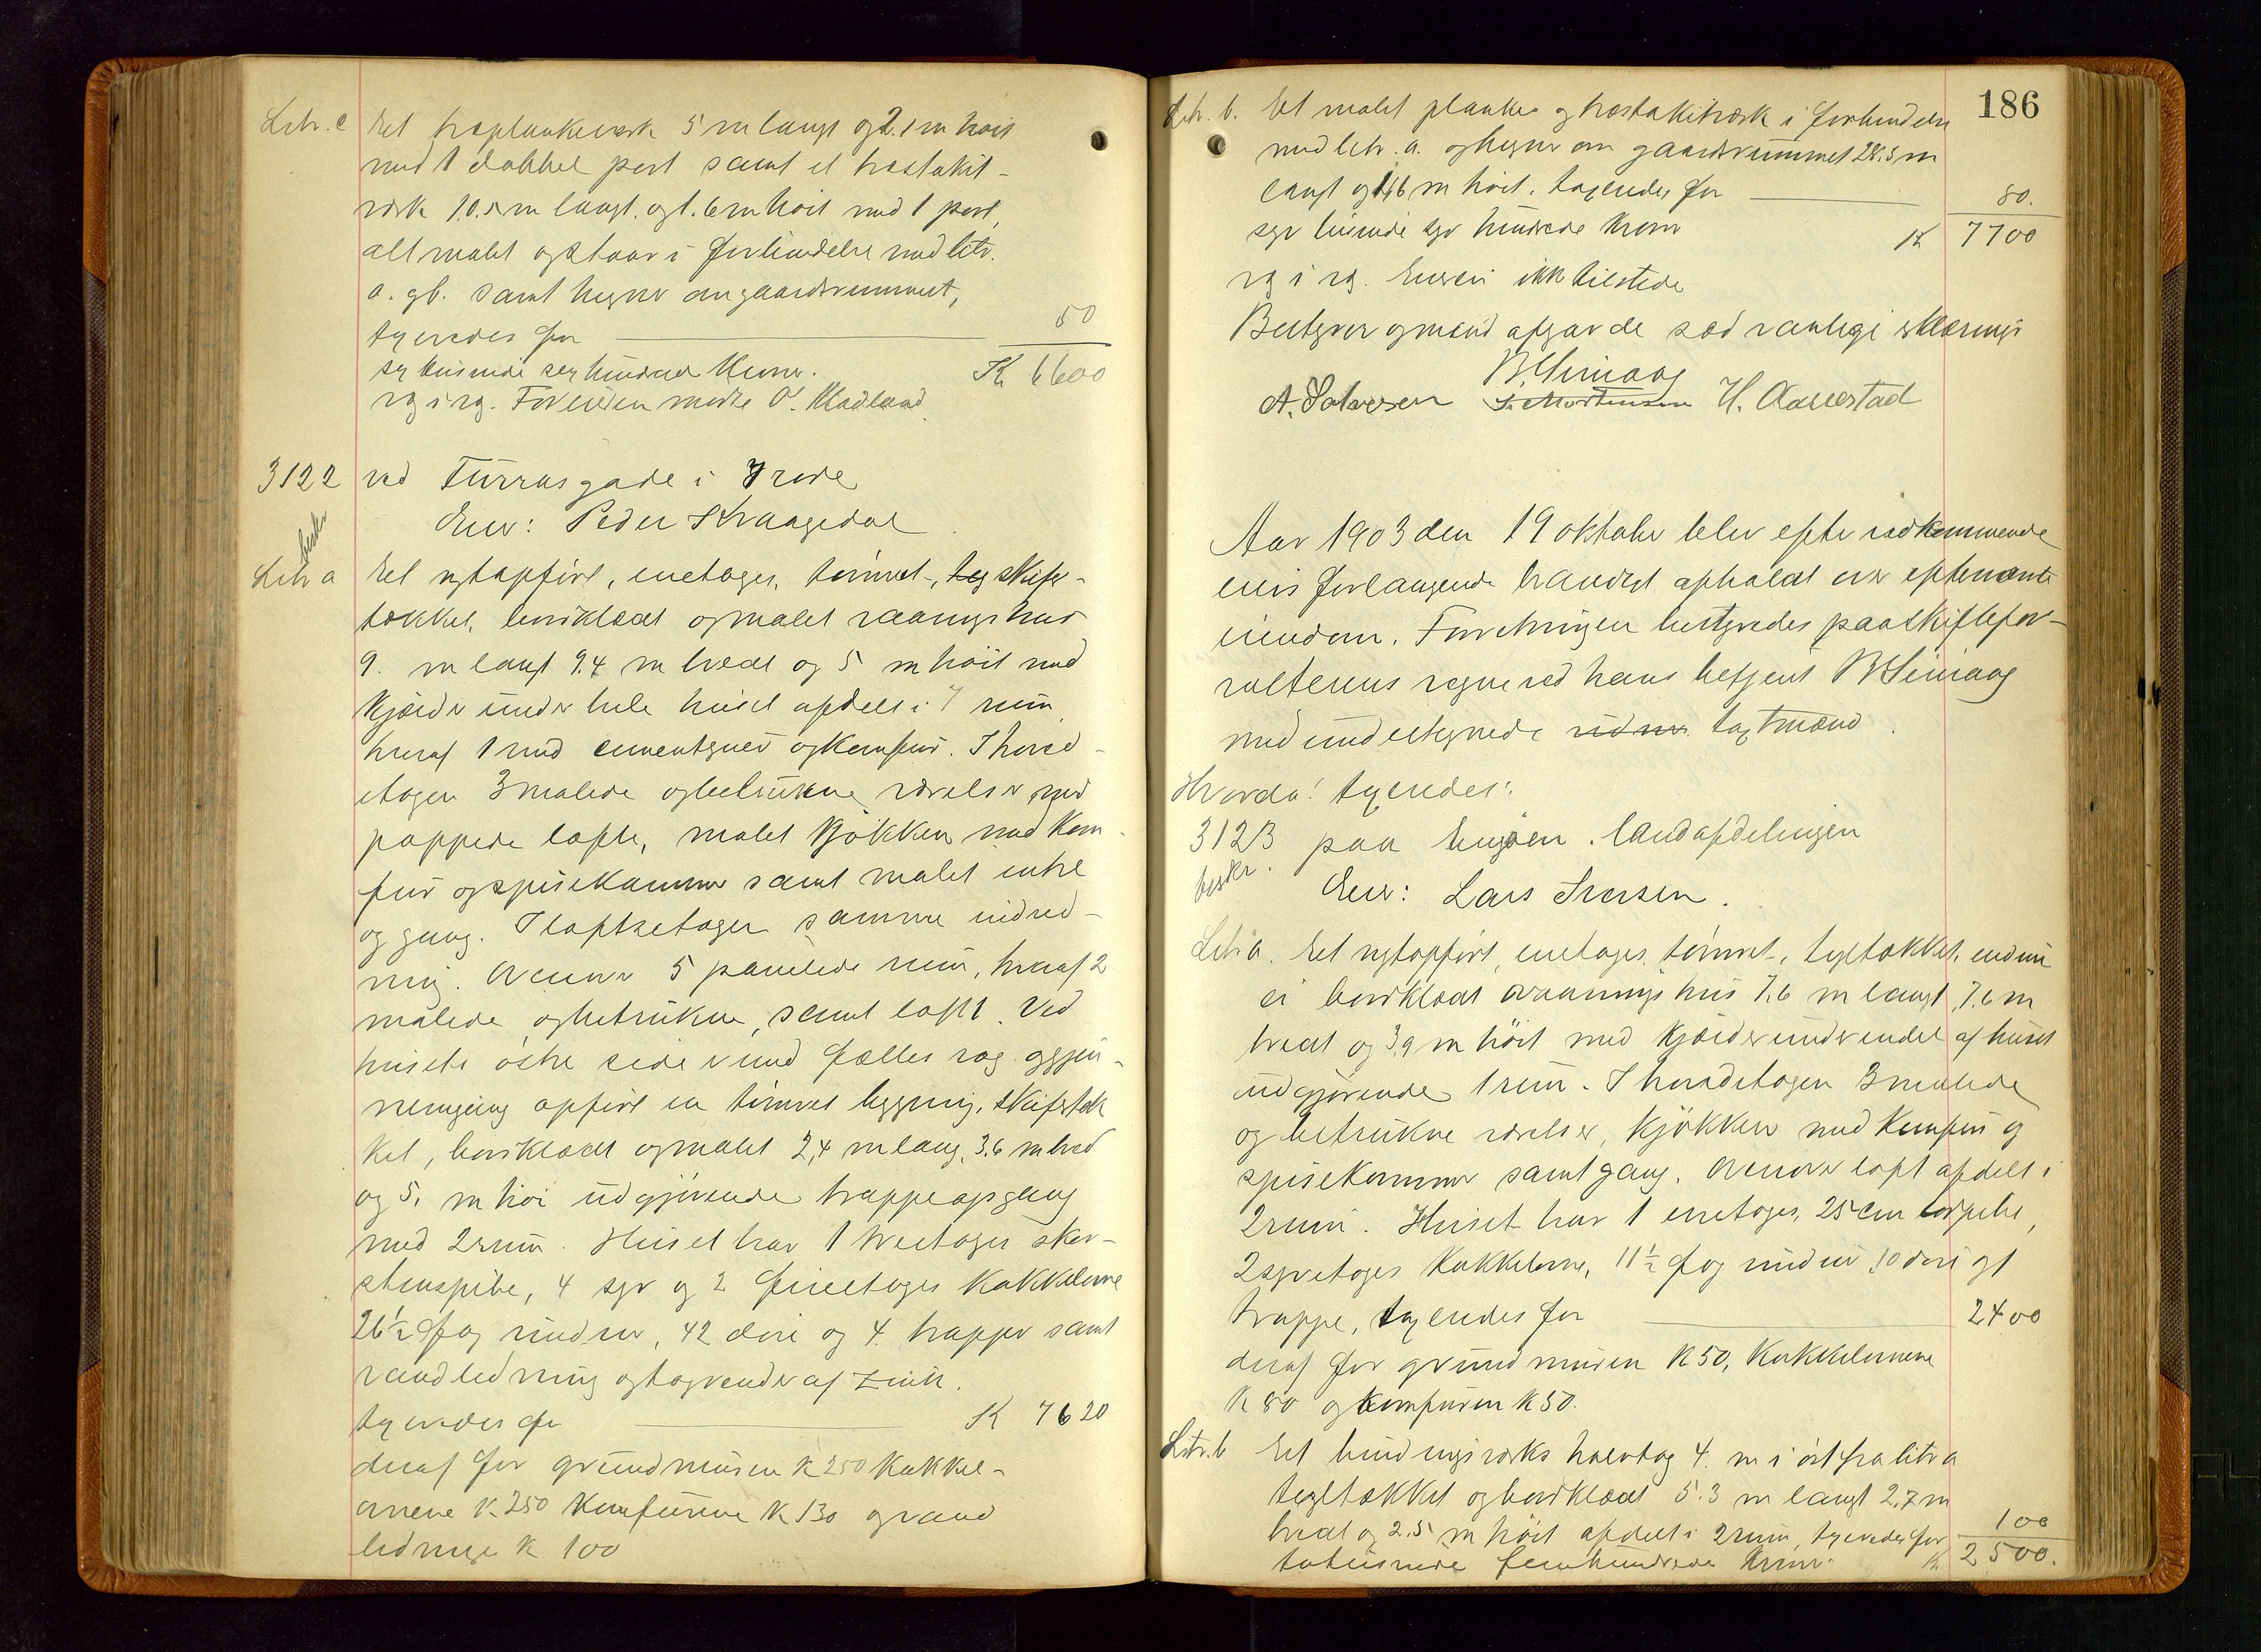 Litr. c Et træplankeværk 5 m langt og 2.1 m høit
med 1 dobbel port samt et træstakit-
værk 10.5 m langt og 1.6 m høit med 1 port,
alt malet og staar i forbindelse med litr.
a. og b. samt hegner om gaardsrummet,
taxeredes for 50
sex tusinde sex hundrede Kroner. K 6600
For eieren mødte O. Madland.
3122 ved Furrasgade i 7 rode
beskr
Eier: Peder Kraagedal
Litr a Et nyt opført, enetages, tømret-, teg skifer-
tækket, bordklædt og malet vaaningshus
9. m langt 9.4 m bredt og 5 m høit med
Kjælder under hele huset afdelt i 7 rum
hvoraf 1 med cementgulv og Komfur. I hoved-
etagen 3 malede og betrukne værelser med
pappede lofte, malet Kjøkken med Kom-
fur og spisekammer samt malet entre
og gang. I loftsetagen samme indred-
ning. Ovenover 5 panelede rum, hvoraf 2
malede og betrukne, samt loft. Ved
husets østre side er med fælles væg og gjen-
nemgang opført en tømret bygning, skifertæk
ket, bordklædt og malet 2,4 m lang, 3.6 m bred
og 5, m høi udgjørende trappeopgang
med 2 rum. Huset har 1 treetages skor-
stenspibe, 4 syv og 2 fireetages Kakkelovne
26½ fag vinduer, 42 døre og 4. trapper samt
vandledning og tagrender af zink.
taxeredes for K 7620
deraf for grundmuren K 250 Kakkel-
ovnene K 250 Komfurene K 130 og vand
ledninge K 100
186
Litr. b. Et malet planke og træstakitværk i forbindelse
med litr. a. og hegner om gaardsrummet 28.5 m
langt og 1,6 m høit. taxeredes for 80.
syv tusinde syv hundrede Kroner K 7700
Eieren ikke tilstede
Bestyrer og mænd afgav de sædvanlige erklæringer
A. Salvesen S. Mortensen H. Aanestad
Aar 1903 den 19 oktober blev efter vedkommende
eiers forlangende branntaxt afholdt over efternævnte
eiendom. Forretningen bestyredes paa skiftefor-
valterens vegne ved hans betjent
med undertegnede vidner taxtmænd.
Hvorda: taxeredes:
3123 paa Engøen. landafdelingen
beskr.
Eier: Lars Iversen.
Litr a. Et nyt opført, enetages, tømret-, tegltækket, endnu
ei bordklædt vaaningshus 7,6 m langt, 7,6 m
bredt og 3,9 m høit med Kjælder under endel af huset
udgjørende 1 rum. I hovedetagen 3 malede
og betrukne værelser, Kjøkken med Komfur og
spisekammer samt gang. Ovenover loft afdelt i
2 rum. Huset har 1 enetages, 25 cm pibe,
2 syvetages Kakkelovne, 11½ fag vinduer, 10 døre og 1
trappe, taxeredes for 2400
deraf for grundmuren K 50, Kakkelovnene
K 80 og Komfuren K 50.
Litr. b Et bindingsværks halvtag 4. m i øst fra litr a
tegltækket og bordklædt 5.3 m langt 2,7 m
bredt og 2.5 m høit afdelt i 2 rum, taxeredes for 100
totusinde femhundrede Kroner K 2500.